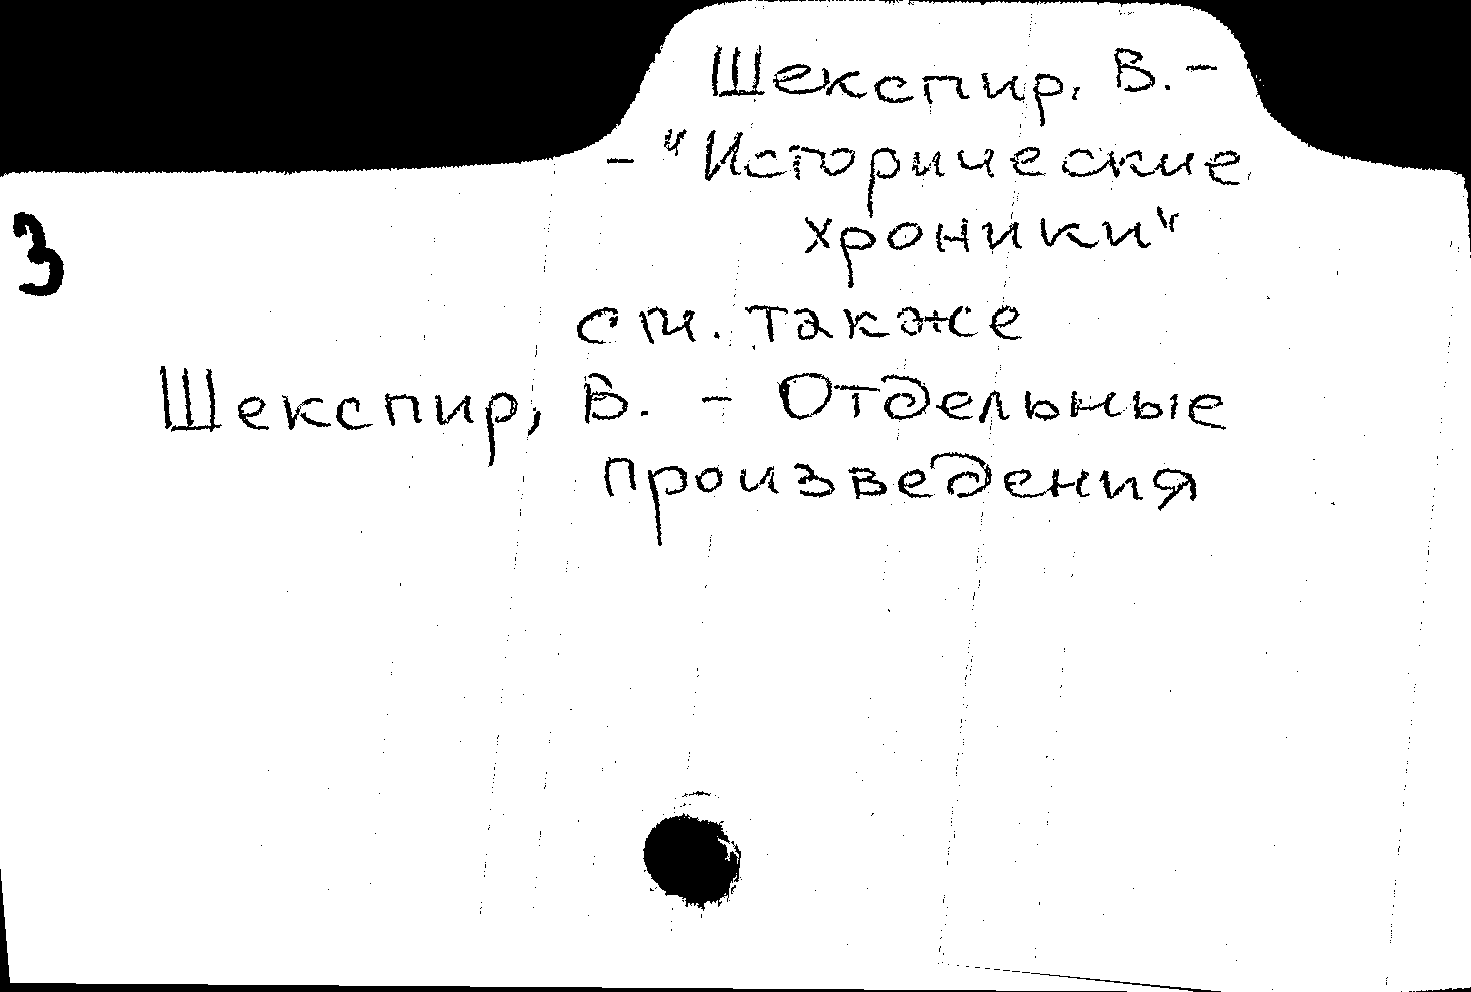 Шекспир, В. -
- "Исторические
хроники"
3
см. также
Шекспир, В. - Отдельные
произведения